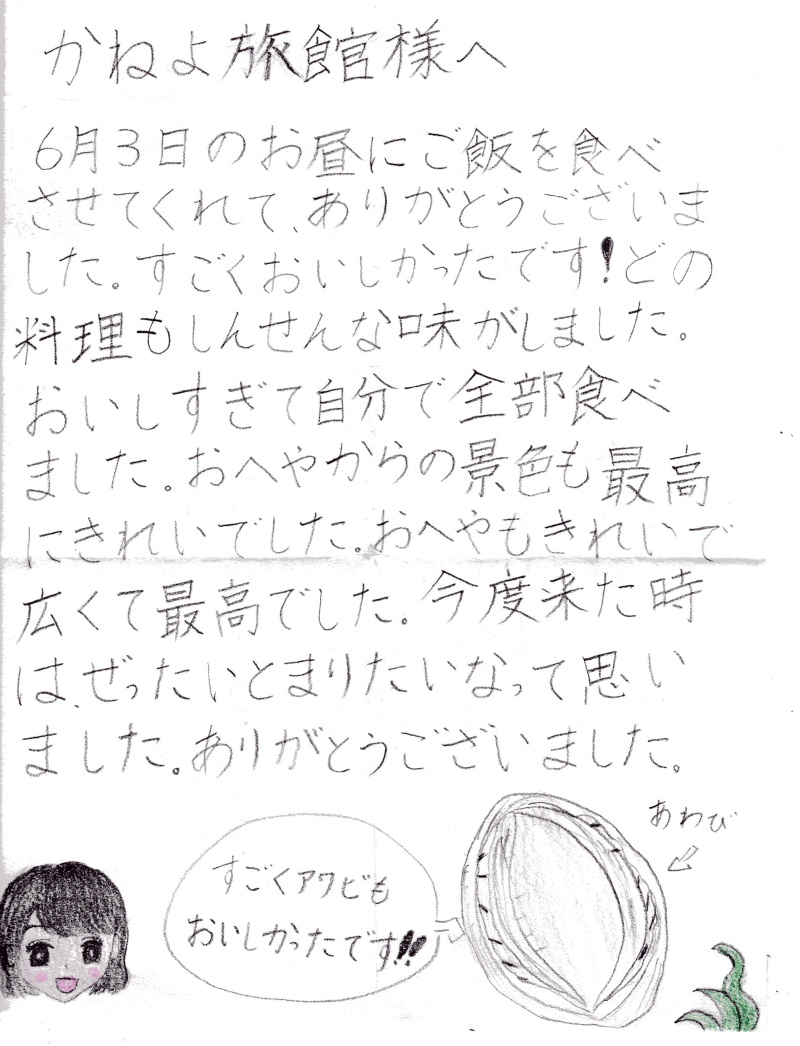 かねよ旅館様へ
6月3日のお昼にご飯を食べ
させてくれて、ありがとうございま
した。すごくおいしかったです!どの
料理もしんせんな味がしました。
おいしすぎて自分で全部食べ
ました。おへやからの景色も最高
にきれいでした。おへやもきれいで
広くて最高でした。今度来た時
は、ぜったいとまりたいなって思い
ました。ありがとうございました。
あわび
すごくアワビも
おいしかったです!!